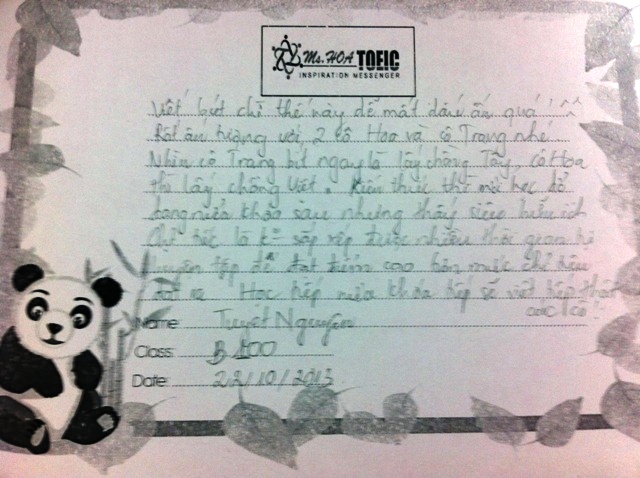 Ms. HOA TOEIC
INSPIRATION MESSENGER
Viết bút chì thế này dễ mất dấu ấn quá! ^^
Rất ấn tượng với 2 cô Hoa và cô Trang nhé.
Nhìn cô Trang biết ngay là lấy chồng Tây, cô Hoa
thì lấy chồng Việt. Kiến thức thì mới học đc
dạng nửa khóa sau nhưng thấy siêu hữu ích
Chỉ tiếc là k sắp xếp được nhiều thời gian
luyện tập để đạt điểm cao hơn mức chỉ tiêu
Học tiếp nửa khóa tiếp sẽ viết tiếp
các cô
Name: Tuyết Nguyễn
Class: B100
Date: 22/10/2013